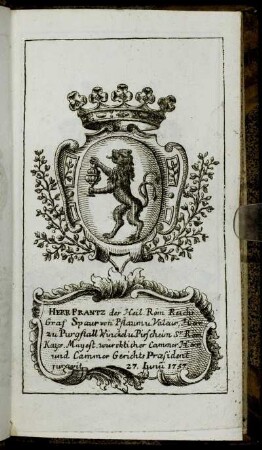 HERR FRANTZ der Heil Röm Reichs
Graf Spaur von Pflaum u. Valair, Herr
zu Purgstall Winckel u. Pirschein, Sr. Röm
Kays. Mayest. würcklicher Cammer Herr
und Cammer Gerichts Præsident
27. Junii 1757.